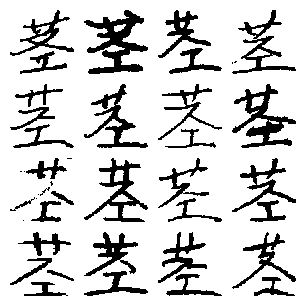 茎茎茎茎
茎茎茎茎
茎茎茎茎
茎茎茎茎